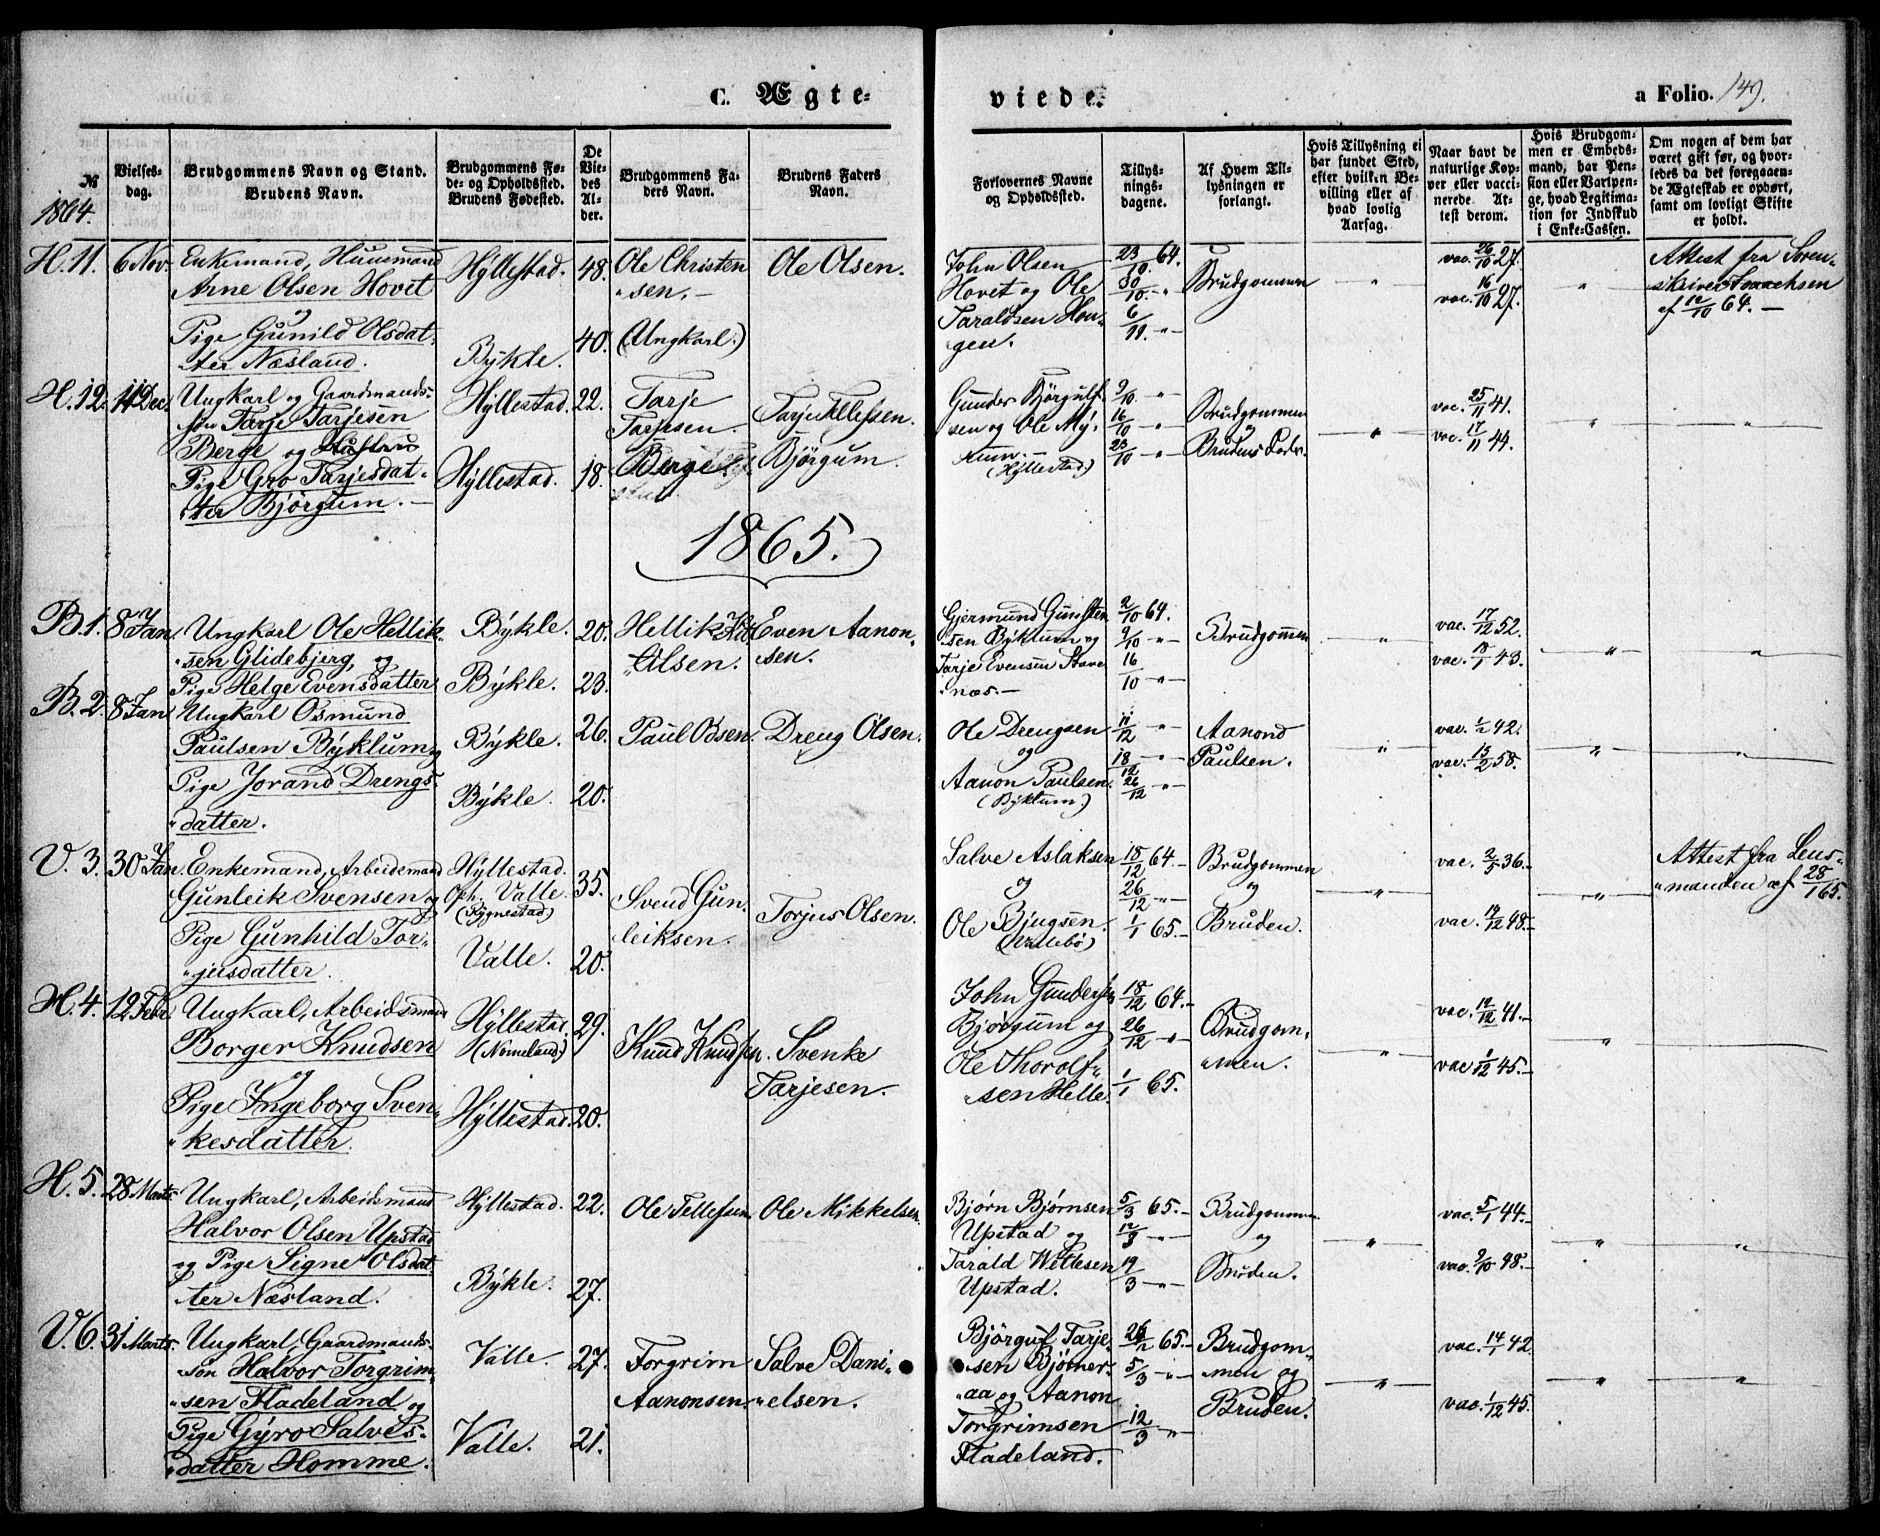 C. Ægte-
viede.
a Folio. 149.
№
1864.
Vielses-
dag.
Brudgommens Navn og Stand.
Brudens Navn.
Brudgommens Fø-
de- og Opholdssted.
Brudens Fødested.
De
Vie-
des
Al-
der.
Brudgommens Fa-
ders Navn.
Brudens Faders
Navn.
Forlovernes Navne
og Opholdssted.
Tillys-
nings-
dagene.
Af Hvem Til-
lysningen er
forlangt.
Hvis Tillysning ei
har fundet Sted,
efter hvilken Be-
villing eller af
hvad lovlig
Aarsag.
Naar havt de
naturlige Kop-
per eller vacci-
nerede. At-
test derom.
Hvis Brudgom-
men er Embeds-
mand, har Pen-
sion eller Vartpen-
ge, hvad Legitima-
tion for Indskud
i Enke-Cassen.
Om nogen af dem har
været gift før, og hvor-
ledes da det foregaaen-
de Ægteskab er ophørt,
samt om lovligt Skifte
er holdt.
H. 11. 6 Nov. Enkemand, Huusmand
Arne Olsen Hovet
og
Pige Gunild Olsdat-
ter Næsland.
Hyllestad. 48.
Bykle. 40.
Ole Christen
"sen. -
(Ungkarl.)
Ole Olsen.
John Olsen
Hovet og Ole
Taraldsen Hou-
gen.
23/10 64.
30/10 - "
6/11 - "
Brudgommen
"
vac. 26/10 27.
vac. 16/10 27.
"
Attest fra Soren-
skriver Isaachsen
af 12/10 64. -
H. 12. 11 Dec. Ungkarl og Gaardmands-
søn Tarje Tarjesen
Berge og
Pige Gro Tarjesdat-
"ter Bjørgum. -
Hyllestad. 22.
Hyllestad. 18.
Tarje
Tarjesen.
Berge
Tarje Tellefsen.
Bjørgum.
Gunder Bjørgulf
sen og Ole My-
rum. -
(Hyllestad.)
9/10. "
16/10 "
23/10 "
Brudgommen
og
Brudens Fader.
"
vac. 25/11 41.
vac. 17/11 44.
"
"
1865.
B. 1. 8 Jan. Ungkarl Ole Hellik-
"sen Glidebjerg, og
Pige Helge Evensdatter
Bykle. 20.
Bykle. 23.
Hellik
Olsen.
Even Aanon-
sen.
Gjermund Gunsten
sen Byklum og
Tarje Evensen Stave
"næs. -
2/10 64.
9/10 "
16/10 "
Brudgommen
"
vac. 17/12 52.
vac. 13/1 43.
"
"
B. 2. 8 Jan. Ungkarl Osmund
Paulsen Byklum og
Pige Jorand Drengs-
"datter.
Bykle. 26.
Bykle. 20.
Paul Olsen.
Dreng Olsen.
Ole Drengsen
og
Aanon Paulsen.
(Byklum.)
11/12 "
18/12 "
26/12 "
Aanond
Paulsen.
"
vac. 1/2 42.
vac. 13/2 58.
"
"
V. 3. 30 Jan. Enkemand, Arbeidsmand
Gunleik Svensen og
Pige Gunhild Tor-
"jusdatter.
Hyllestad.
Oph. Valle.
(Rygnestad)
35.
Valle. 20.
Svend Gun-
leiksen.
Torjus Olsen.
Salve Aslaksen
og
Ole Bjugsen.
18/12 64. -
26/12 "
1/1 65. -
Brudgommen
og
Bruden.
"
vac. 2/5 36. -
vac. 14/12 48. -
"
Attest fra Lens-
"manden af 28/1 65.
H. 4. 12 Febr. Ungkarl, Arbeidsmand
Borger Knudsen
og
Pige Ingeborg Sven-
"kesdatter.
Hyllestad.
(Nomeland)
29.
Hyllestad. 20.
Knud Knudsen.
Svenke
Tarjesen.
John Gundersen
Bjørgum og
Ole Thorolf-
"sen Helle.
18/12 64. -
26/12 "
1/1 65.
Brudgom-
"men.
"
vac. 14/12 41. -
vac 1/12 45. -
"
H. 5. 28 Marts. Ungkarl, Arbeidsmand
Halvor Olsen Upstad
og Pige Signe Olsdat-
ter Næsland.
Hyllestad. 22.
Bykle. 27.
Ole Tellefsen.
Ole Mikkelsen
Bjørn Bjørnsen
Upstad og
Tarald Wittesen
Upstad.
5/3 65. -
12/3 "
19/3 "
Brudgommen
og
Bruden.
"
vac. 5/1 44. -
vac. 9/10 48. -
"
"
V. 6. 31 Marts. Ungkarl, Gaardmands-
søn Halvor Torgrim-
"sen Fladeland og
Pige Gyro Salves-
"datter Homme.
Valle. 27.
Valle. 21.
Torgrim
Aanonsen.
Salve Dani-
"elsen.
Bjørguf Tarje-
"sen Bjørner-
"aa og Aanon
Torgrimsen
Fladeland.
26/2 65. -
5/3 "
12/3 "
Brudgom-
men og
Bruden.
"
vac. 14/1 42.
vac. 1/12 45.
"
"